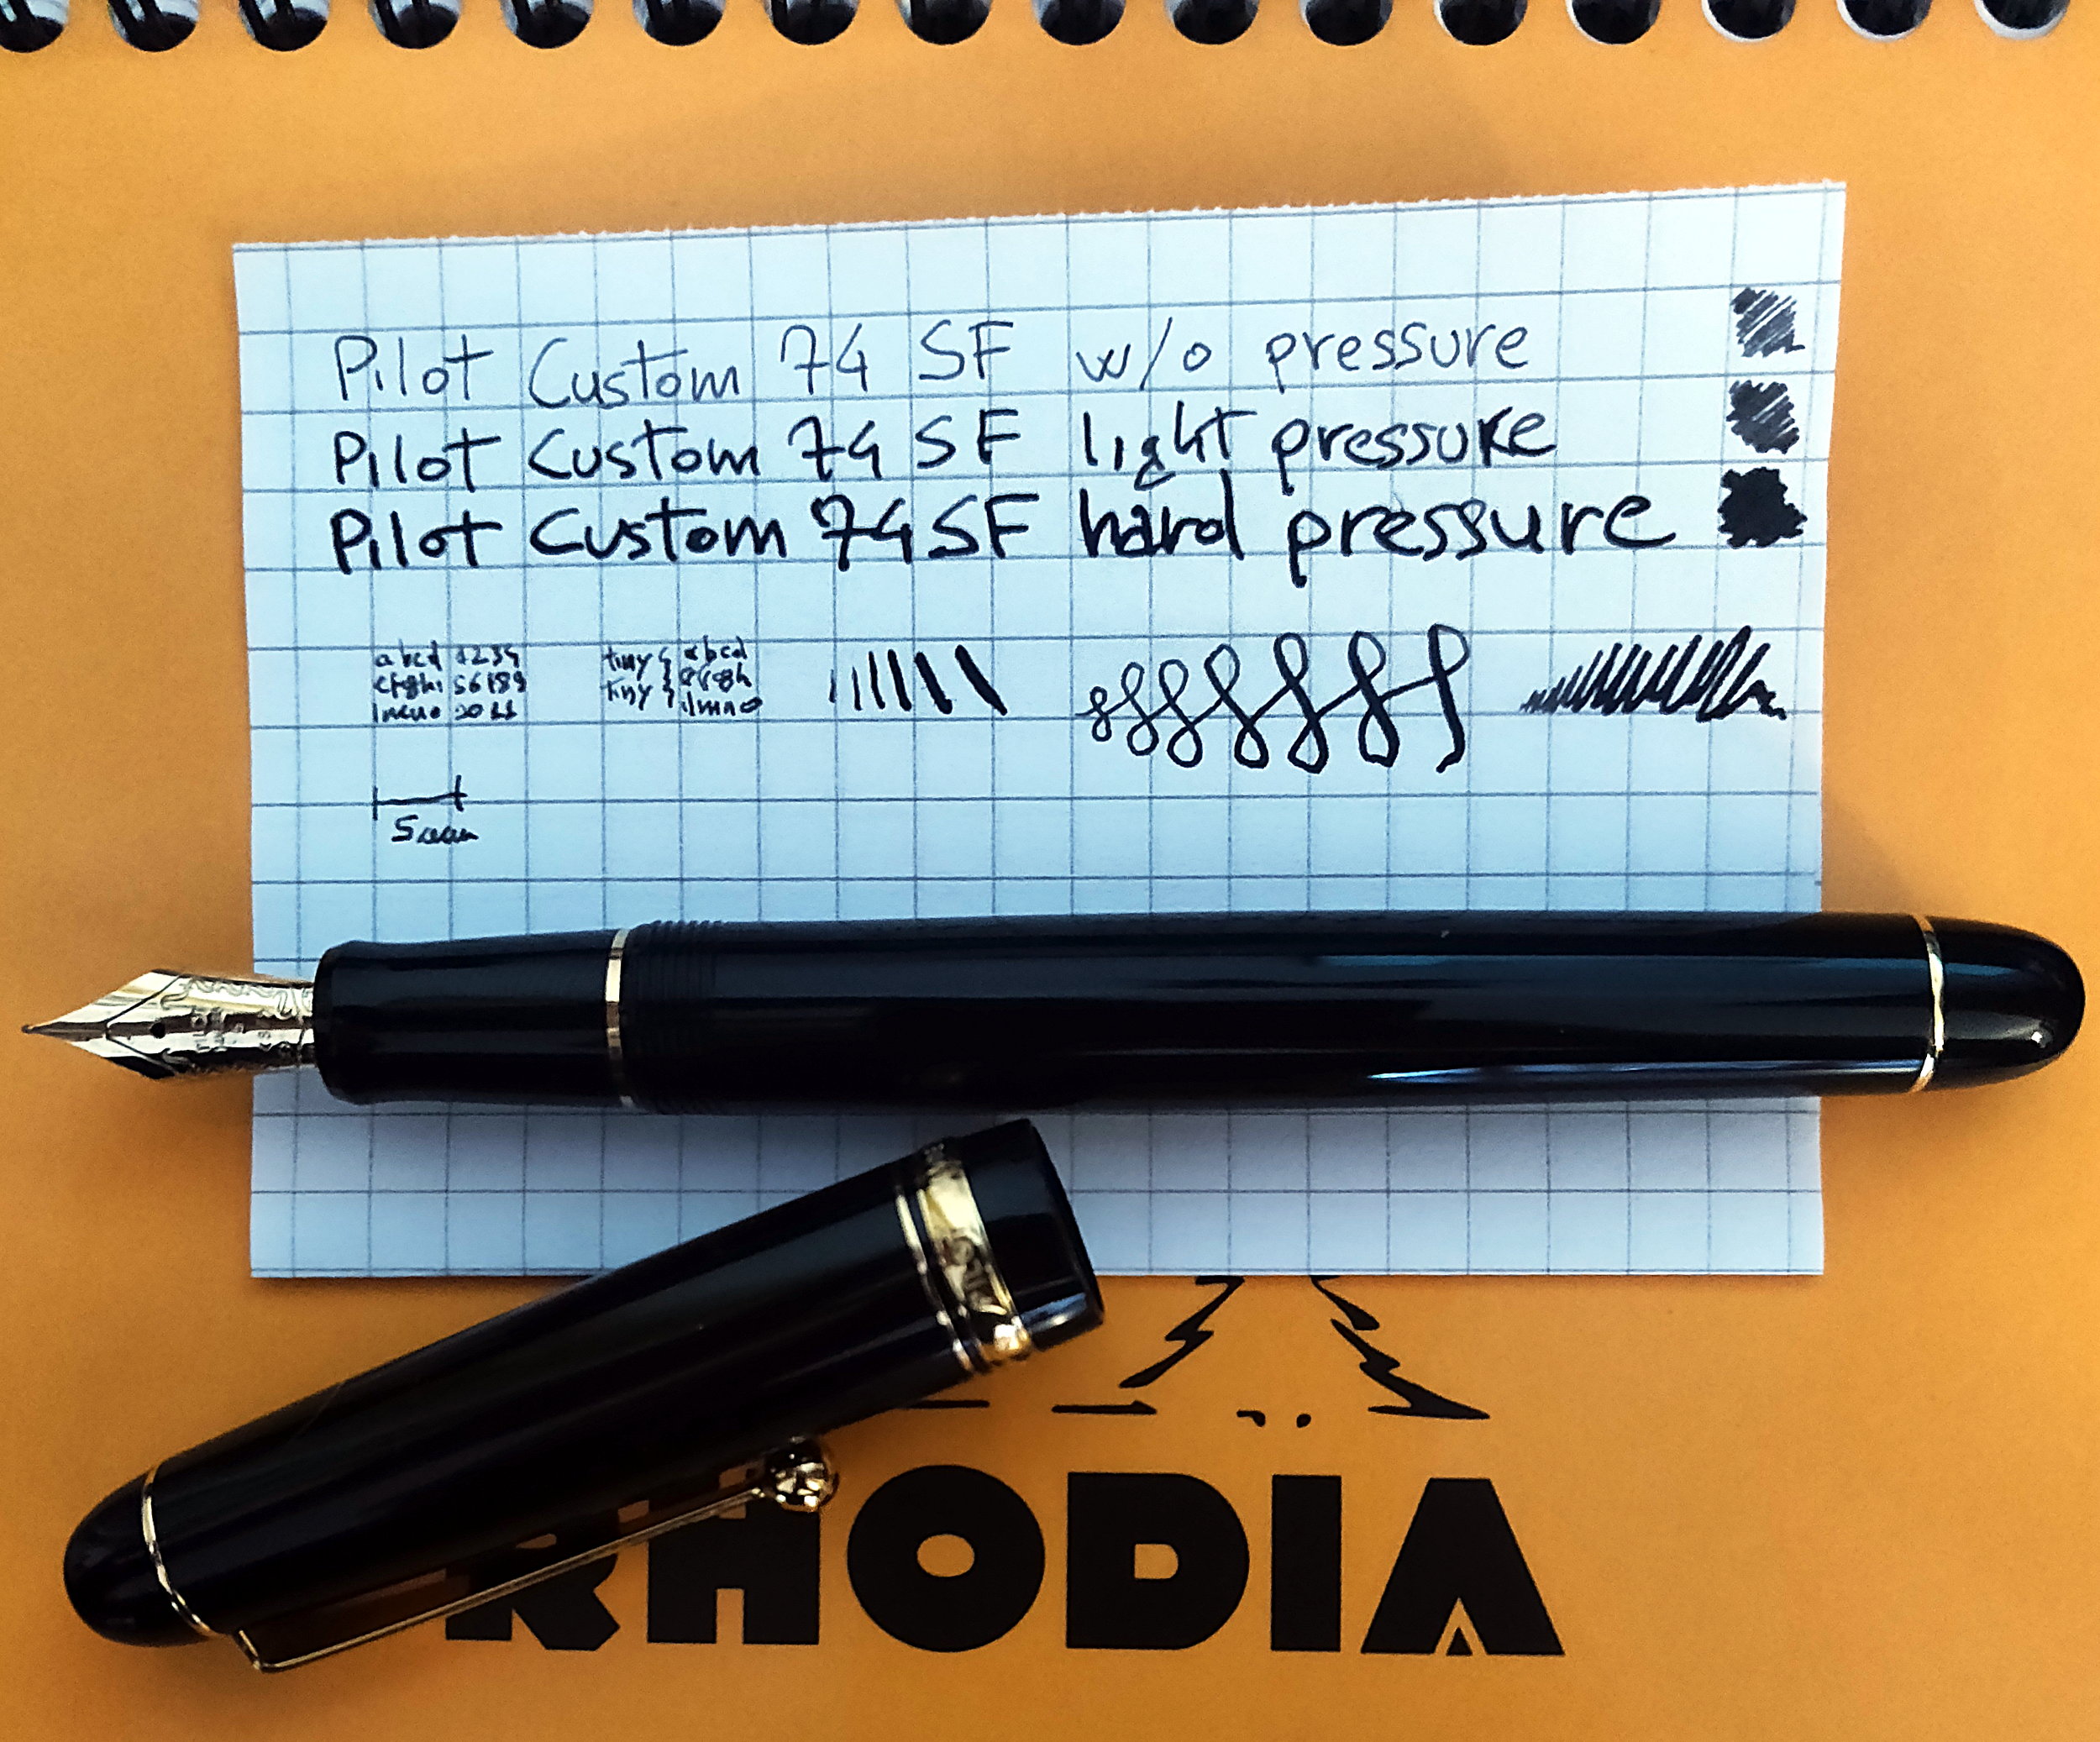 Pilot Custom 74 SF w/o pressure
Pilot Custom 74 SF light pressure
Pilot Custom 74 SF hard pressure
abcd 1234 tiny { abcd
efghi 56789 tiny } efgh
lmno
5mm
RHODIA